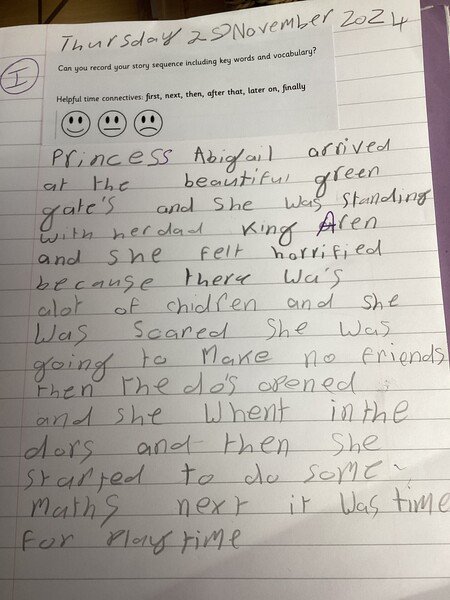 Thursday 28 November 2024
I
Can you record your story sequence including key words and vocabulary?
Helpful time connectives: first, next, then, after that, later on, finally
Princess Abigail arrived
at the beautiful green
gate's and she was standing
with her dad King Aren
and she felt horrified
because there wa's
alot of chidren and she
was scared she was
going to make no friends
then the do's opened
and she whent in the
dors and then she
starred to do some
maths next it was time
for playtime